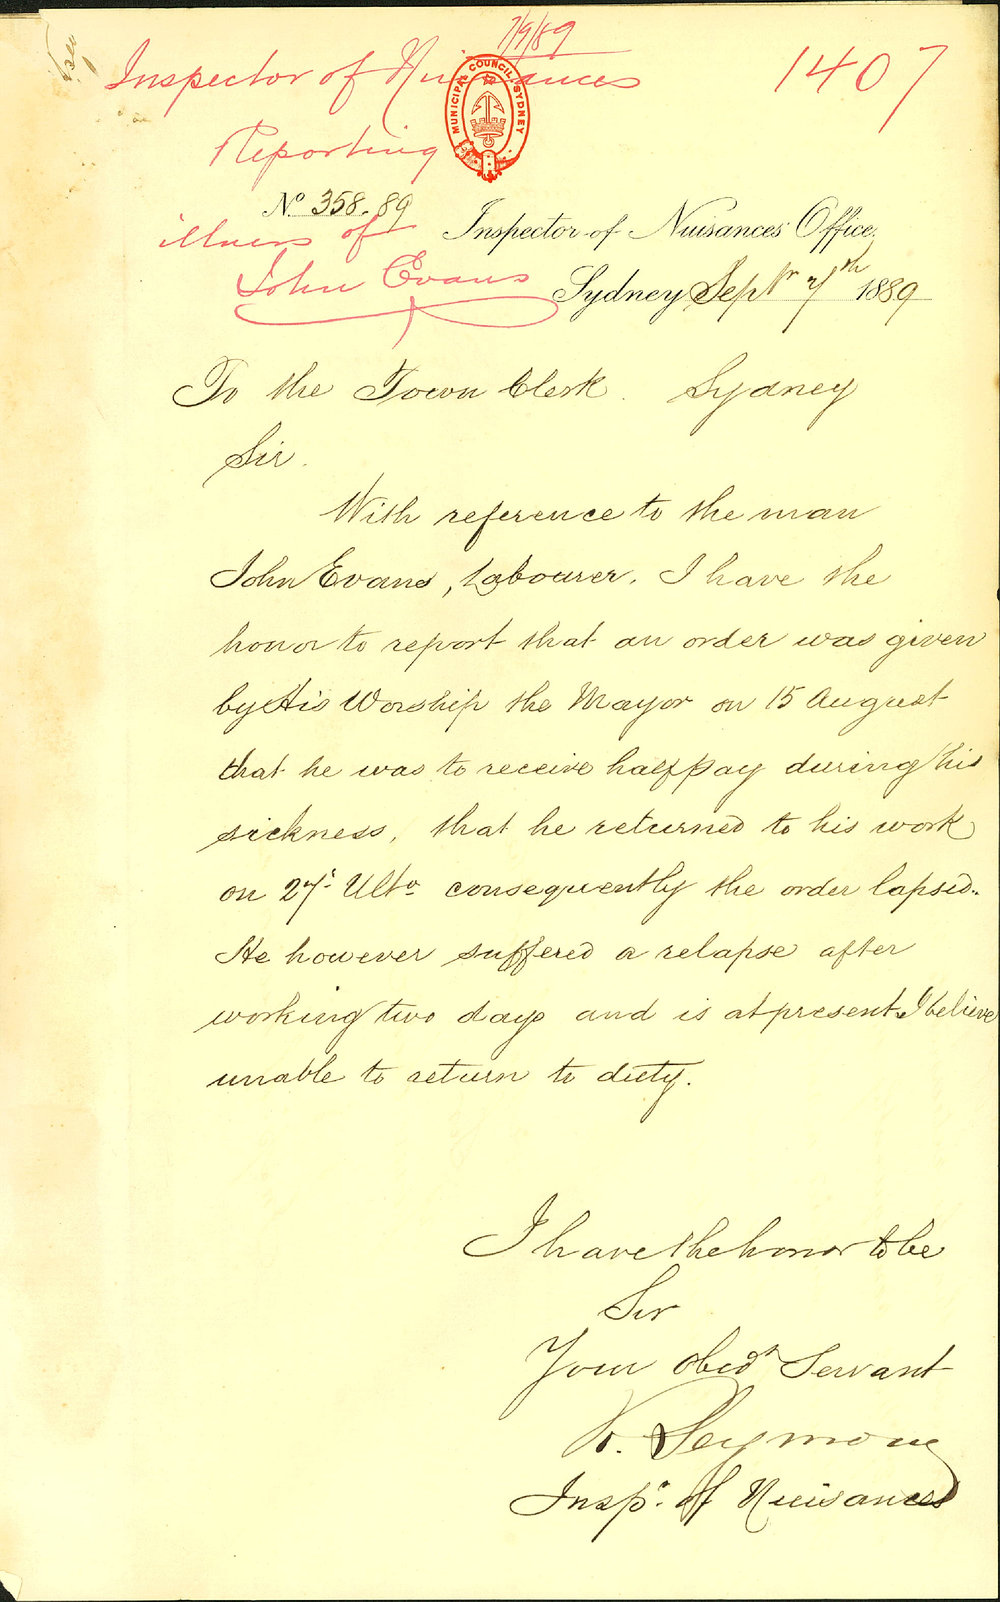 7/9/89
Inspector of Nuisances
1407
MUNICIPAL COUNCIL SYDNEY
Reporting
No 358.89
illness of
Inspector of Nuisances Office,
John Evans
Sydney Septr 7th 1889
To the Town Clerk. Sydney
Sir.
With reference to the man
John Evans, Labourer. I have the
honor to report that an order was given
by His Worship the Mayor on 15 August
that he was to receive half pay during his
sickness, that he returned to his work
on 27th Ulto consequently the order lapsed.
He however suffered a relapse after
working two days and is at present I believe
unable to return to duty.
I have the honor to be
Sir
Your Obedt Servant
Seymour
Inspr. of Nuisances